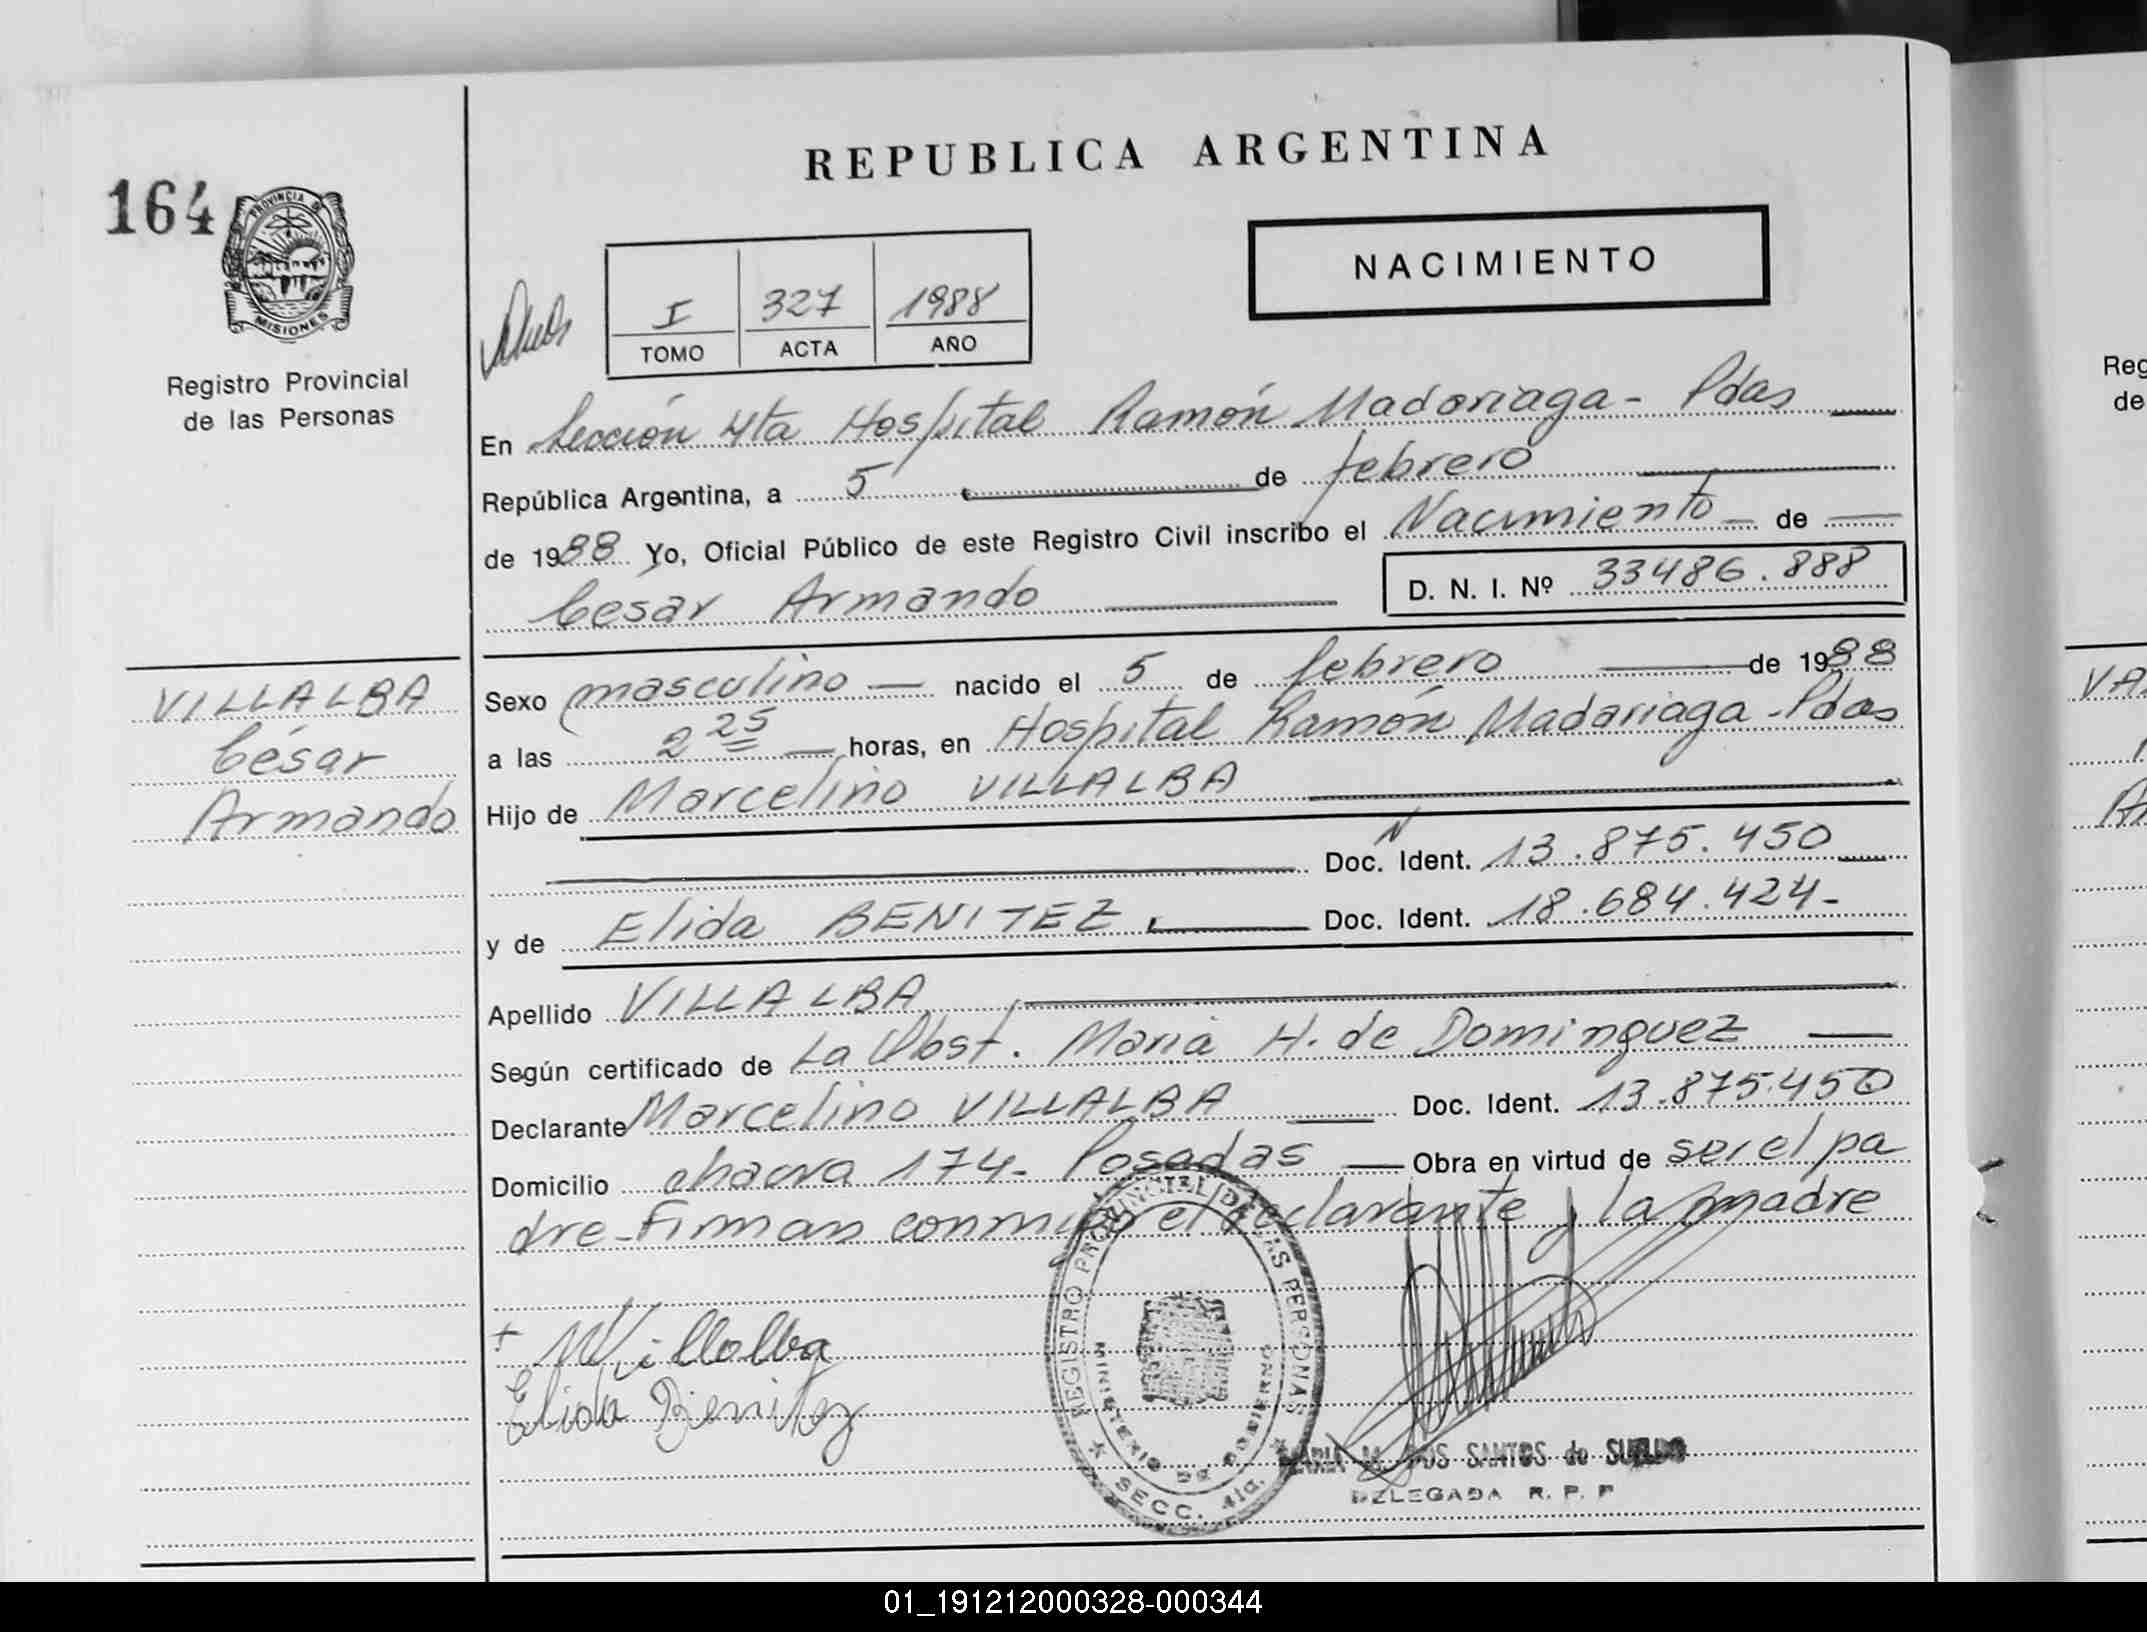 REPUBLICA ARGENTINA
164
PROVINCIA DE
MISIONES
Registro Provincial
de las Personas
NACIMIENTO
I 327 1988
TOMO ACTA AÑO
En Sección 4ta Hospital Ramón Madariaga - Pdas
República Argentina, a 5 de febrero
de 1988 Yo, Oficial Público de este Registro Civil inscribo el Nacimiento de
César Armando D. N. I. Nº 33486.888
VILLALBA
César
Armando
Sexo masculino nacido el 5 de febrero de 1988
a las 2 25 horas, en Hospital Ramón Madariaga - Pdas
Hijo de Marcelino VILLALBA
Doc. Ident. 13.875.450
y de Elida BENITEZ. Doc. Ident. 18.684.424-
Apellido VILLALBA
Según certificado de La Obst. Maria H. de Dominguez
Declarante Marcelino VILLALBA Doc. Ident. 13.875.450
Domicilio chacra 174- Posadas Obra en virtud de ser el pa
dre-Firman conmigo el declarante y la madre
+ MVillalba
Elida Benitez
REGISTRO PROVINCIAL DE LAS PERSONAS
MINISTERIO DE GOBIERNO
SECC. 4ta.
MARIA M. DOS SANTOS de SUELDO
DELEGADA R. P. P
Reg
de
VA
01_191212000328-000344